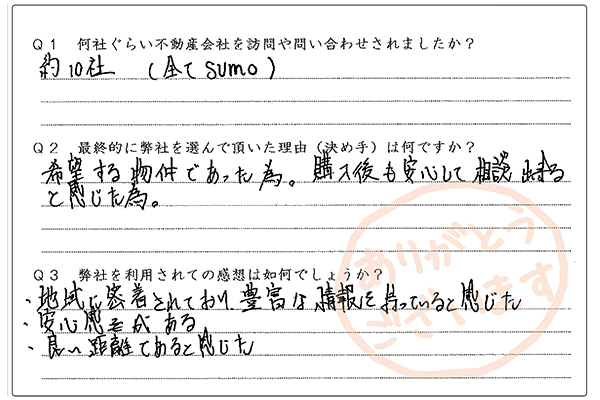 Q1 何社ぐらい不動産会社を訪問や問い合わせされましたか?
約10社 (全てSUMO)
Q2 最終的に弊社を選んで頂いた理由(決め手)は何ですか?
希望する物件であった為。購入後も安心して相談出来る
と感じた為。
Q3 弊社を利用されての感想は如何でしょうか?
・地域に密着されており、豊富な情報を持っていると感じた
・安心感がある
・良い距離であると感じた
ありがとう
ございます